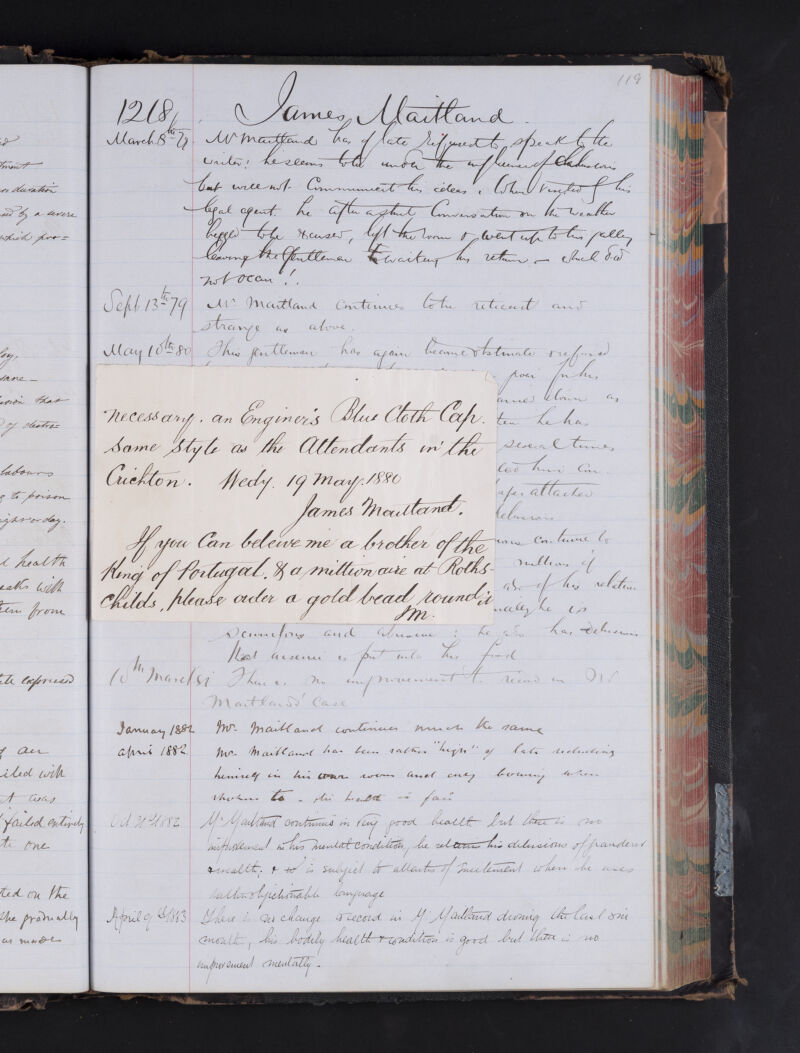 119
1218, James Maitland.
March 8th 79 Mr Maitland has of late refused to speak to the
writer: he seems to be under the influence of delusions
but will not communicate his ideas. When visited by his
legal agent he after a short conversation on the weather
begged to be excused, left the room & went up to his gallery
leaving the gentleman awaiting his return – which did
not occur!!
Sept 13th 79 Mr Maitland continues to be reticent and
strange as above.
May 10th 80 This gentleman has again become obstinate & refused
necessary. an Enginer's Blue Cloth Cap.
same style as the Attendants in the
Crichton. Wedy. 19 May. 1880
James Maitland.
If you Can beleive me a brother of the
King of Portugal. & a millionaire at Roths-
childs, please order a gold bead round it
JM.
in his
down as
he has
several times
him
attacked
delusions
continue to
millions of
of his relation
he is
and abusive: he also has delusions
that arsenic is put into his food
10th March 81 There is no improvement to record in Mr
Maitland's case
January 1882 Mr. Maitland continues much the same
April 1882 Mr. Maitland has been rather "high" of late secluding
himself in his own room and only bowing when
spoken to. His health is fair
Oct 1882 Mr Maitland continues in very good health but there is no
improvement in his mental condition, he retains his delusions of grandeur
& wealth; & is subject to attacks of excitement when he uses
objectionable language
April 9th 1883 There is no change to record in Mr Maitland during the last six
months, his bodily health & condition is good but there is no
improvement mentally.
ment
duration
by a severe
which pro-
sane-
labours
to poison
night or day.
health
with
from
expressed
of an
with
was
failed entirely
one
on the
she gradually